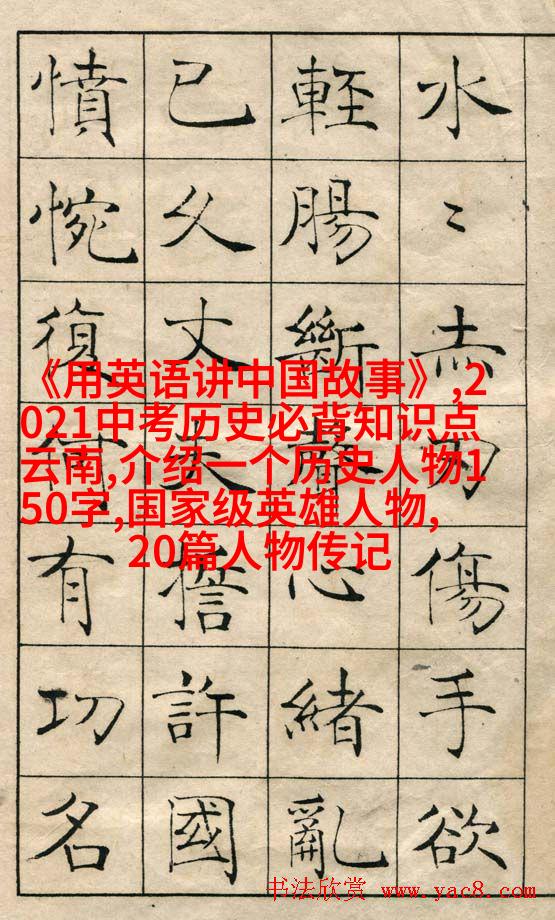 水〻赤刃傷手欲
輕腸斷聲心緒亂
已久丈夫誓許國
憤惋復何有功名
《用英语讲中国故事》,2
021中考历史必背知识点
云南,介绍一个历史人物1
50字,国家级英雄人物,
20篇人物传记
书法欣赏 www.yac8.com